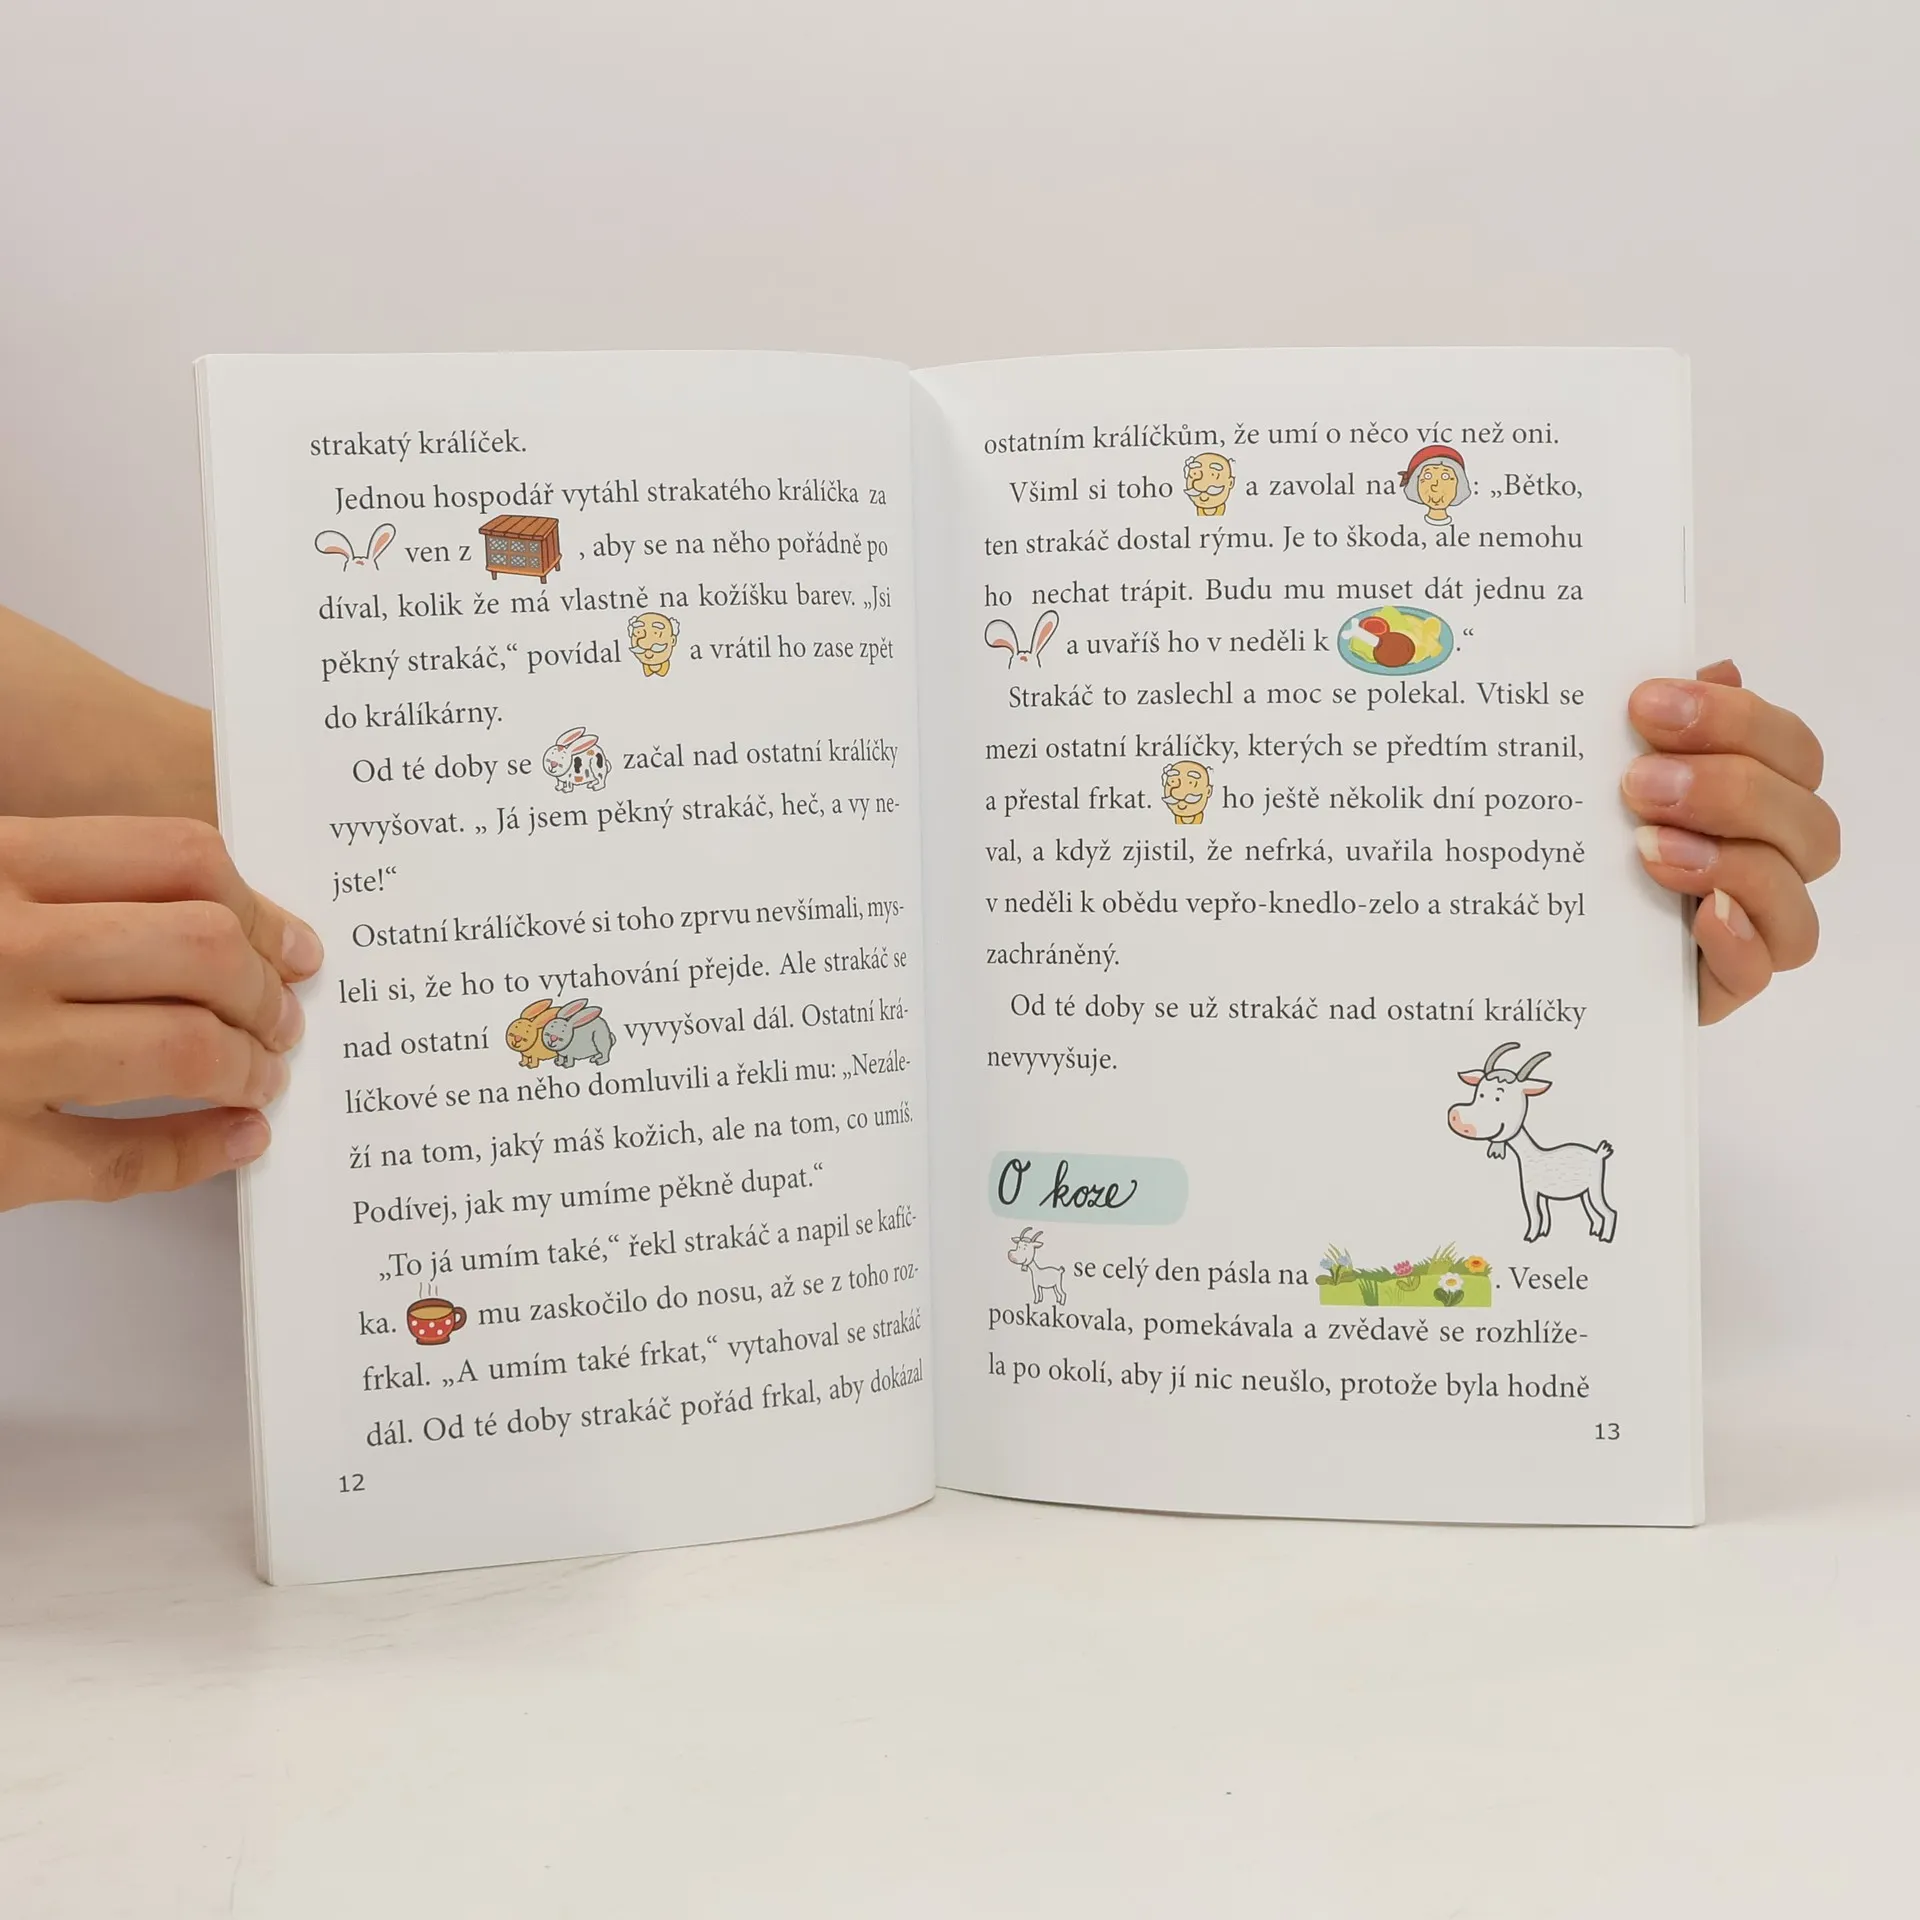 strakatý králíček.
Jednou hospodář vytáhl strakatého králíčka za
ven z , aby se na něho pořádně po
díval, kolik že má vlastně na kožíšku barev. „Jsi
pěkný strakáč,“ povídal a vrátil ho zase zpět
do králíkárny.
Od té doby se začal nad ostatní králíčky
vyvyšovat. „ Já jsem pěkný strakáč, heč, a vy ne-
jste!“
Ostatní králíčkové si toho zprvu nevšímali, mys-
leli si, že ho to vytahování přejde. Ale strakáč se
nad ostatní vyvyšoval dál. Ostatní krá-
líčkové se na něho domluvili a řekli mu: „Nezále-
ží na tom, jaký máš kožich, ale na tom, co umíš.
Podívej, jak my umíme pěkně dupat.“
„To já umím také,“ řekl strakáč a napil se kafíč-
ka. mu zaskočilo do nosu, až se z toho roz-
frkal. „A umím také frkat,“ vytahoval se strakáč
dál. Od té doby strakáč pořád frkal, aby dokázal
12
ostatním králíčkům, že umí o něco víc než oni.
Všiml si toho a zavolal na : „Bětko,
ten strakáč dostal rýmu. Je to škoda, ale nemohu
ho nechat trápit. Budu mu muset dát jednu za
a uvaříš ho v neděli k .“
Strakáč to zaslechl a moc se polekal. Vtiskl se
mezi ostatní králíčky, kterých se předtím stranil,
a přestal frkat. ho ještě několik dní pozoro-
val, a když zjistil, že nefrká, uvařila hospodyně
v neděli k obědu vepřo-knedlo-zelo a strakáč byl
zachráněný.
Od té doby se už strakáč nad ostatní králíčky
nevyvyšuje.
O koze
se celý den pásla na . Vesele
poskakovala, pomekávala a zvědavě se rozhlíže-
la po okolí, aby jí nic neušlo, protože byla hodně
13